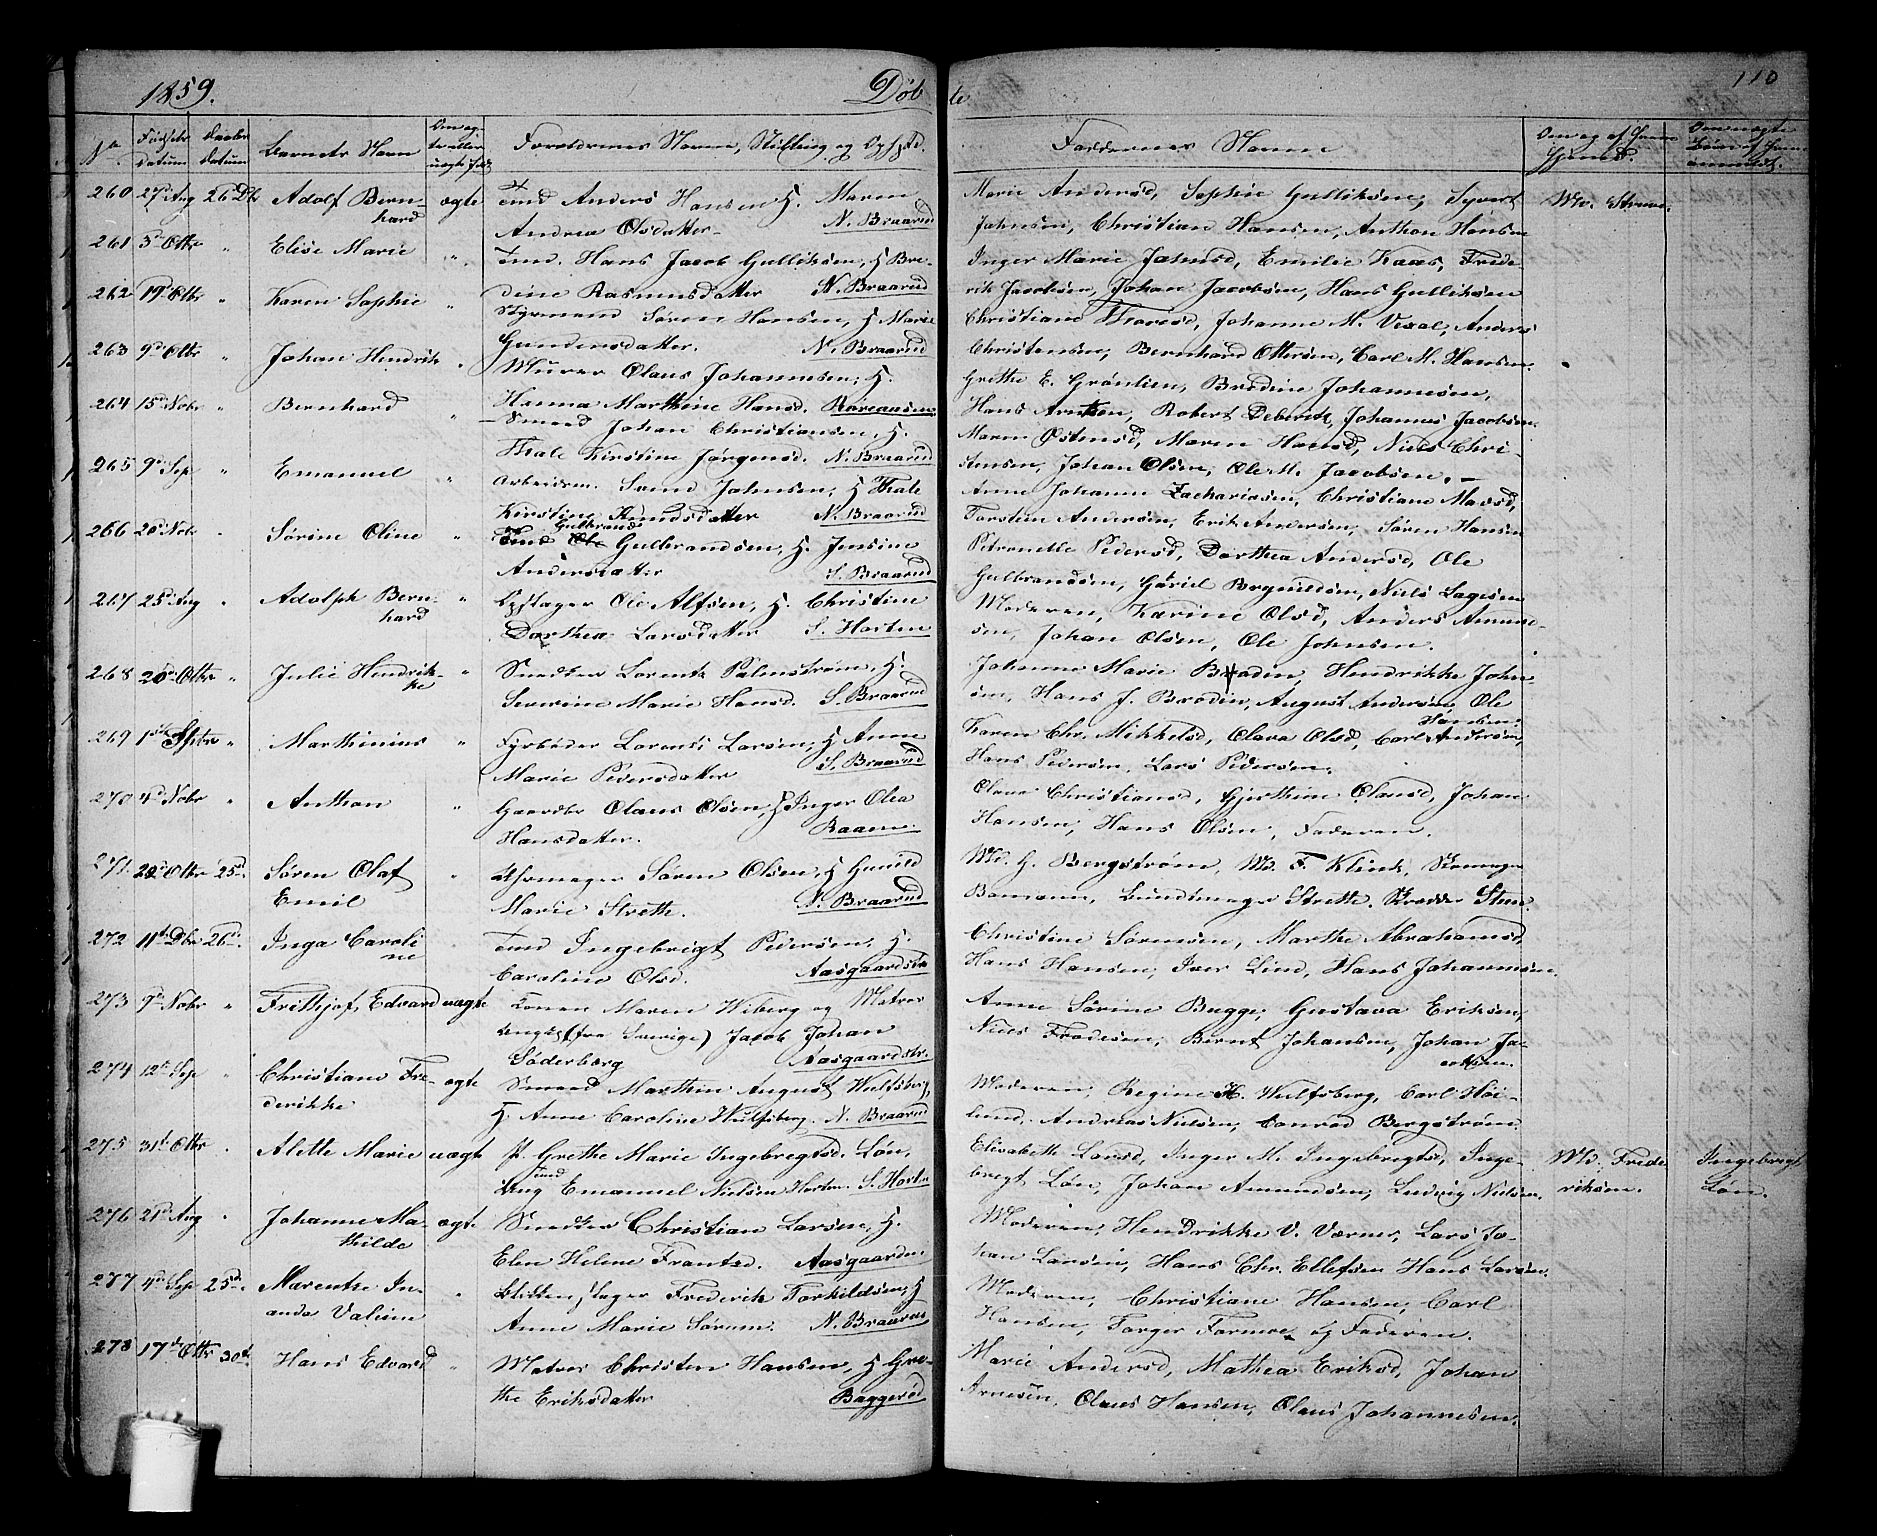 1859.
Døb
te
110
No
Fødsels datum
Daabs datum
Barnets Navn
Om ægte eller uægte født
Forældrenes Navne, Stilling og Opholdst.
Faddernes Navne
260 27d Aug 26 Dbr Adolf Bern- ægte Tmd Anders Hansen H. Maren
hard Andrea Olsdatter N. Braarud
Marie Andersd, Sophie Gulliksen, Syvert
Johnsen, Christian Hansen, Anthon Hansen
Md. Strøm
261 5d Otbr " Elise Marie " Tmd. Hans Jacob Gulliksen, H Bre-
dine Rasmusdatter N. Braarud
Inger Marie Johnsd, Emilie Kaas, Frede-
rik Jacobsen, Johan Jacobsen, Hans Gulliksen
262 19d Otbr " Karen Sophie " Styrmand Søren Hansen, H Marie
Gundersdatter. N. Braarud
Christiane Thoresd, Johanne M. Vexal, Anders
Christensen, Bernhard Ottersen, Carl M. Hansen
263 9d Otbr " Johan Hendrik " Murer Olaus Johannesen, H.
Hanna Marthine Hansd.
Grethe E. Grønlien, Bredine Johannesen,
Hans Arntsen, Robert Deberitz, Johannes Jacobsen
264 15d Nobr " Bernhard " Smed Johan Christiansen, H.
Thale Kirstine Jørgensd. N. Braarud
Maren Østensd, Maren Hansd, Niels Chri-
stensen, Johan Olsen, Ole M. Jacobsen.
265 9d Sep " Emanuel " Arbeidsm. Svend Johnsen, H Thale
Kirstine Amundsdatter N. Braarud
Anne Johanne Zachariasen, Christiane Madsd,
Torsten Andersen, Erik Andersen, Søren Hansen
266 20d Nobr " Sørine Oline " Tmd Gulbrand Gulbrandsen, H. Jensine
Andersdatter S. Braarud
Petronelle Pedersd, Dorthea Andersd, Ole
Gulbrandsen, Gabriel Brynildsen, Niels Lagesen
267 25d Aug " Adolph Bern- " Opslager Ole Alfsen, H. Christine
hard Dorthea Larsdatter S. Horten
Moderen, Karine Olsd, Anders Amund-
sen, Johan Olsen, Ole Johnsen.
268 20d Otbr " Julie Hendrik- " Snedker Lorentz Palmstrøm, H.
ke Severine Marie Hansd. S. Braarud
Johanne Marie Brodin, Hendrikke John-
sen, Hans J. Brodin, August Andersen, Ole
Hansen.
269 1ste Spbr " Marthinius " Fyrbøder Lorents Larsen, H Anne
Marie Pedersdatter S. Braarud
Karen Chr. Mikkelsd, Olava Olsd, Carl Andersen,
Hans Pedersen, Lars Pedersen.
270 4d Nobr " Anthon " Gaardbr Olaus Olsen, H Inger Olea
Hansdatter. Raane.
Olava Christiansd, Gjerthine Olausd, Johan
Hansen, Hans Olsen, Faderen.
271 22d Otbr 25d. Søren Olaf " Uhrmager Søren Olsen, H Gunild
Emil Marie Strette. N. Braarud
Md. G. Bergstrøm, Md. F. Klinck, Skomager
Bomann, Bundtmager Strette. Skrædder Steen
272 11te Dbr 26d. Inga Caroli- " Tmd Ingebrigt Pedersen, H.
ne Caroline Olsd. Aasgaardstr
Christine Sørensen, Marthe Abrahamsd,
Hans Hansen, Iver Lind, Hans Johannesen.
273 9de Nobr " Frithjof Edvard uægte Konen Maren Wiberg og Matros
Ungk (fra Sverige) Jacob Johan
Søderberg Aasgaardstr.
Anne Sørine Bugge, Gustava Eriksen,
Niels Fredesen, Bernt Johansen, Johan Ja-
cobsen.
274 12te Sep " Christiane Fre- ægte Smed Marthin August Wulfsberg,
derikke H Anne Caroline Wulfsberg. N. Braarud
Moderen, Regine H. Wulfsberg, Carl Høi-
lund, Andreas Nielsen, Conrad Bergstrøm
275 31te Otbr " Alette Marie uægte P. Grethe Marie Ingebregtsd. Løn,
Ung tmd Emanuel Nielsen Horten. S. Horten
Elisabeth Larsd, Inger M. Ingebregtsd, Inge-
bregt Løn, Johan Amundsen, Ludvig Nielsen
Md. Frede
riksen.
Ingebregt
Løn.
276 21d Aug " Johanne Ma- ægte Snedker Christian Larsen, H.
thilde Elen Helene Frantsd. Aasgaarden
Moderen, Hendrikke V. Værner, Lars Jo-
han Larsen, Hans Chr. Ellefsen Hans Larsen.
277 4d Sep 25d. Marentze In- " Blikkenslager Frederik Torkildsen, H
anda Valine Anne Marie Sørum. N. Braarud
Moderen, Christiane Hansen, Carl
Hansen, Torger Tormoe og Faderen.
278 17de Otbr 30te Hans Edvard " Matros Christen Hansen, H Gre-
the Eriksdatter Baggerød
Marie Andersd, Mathea Eriksd, Johan
Arnesen, Olaus Hansen, Olaus Johannesen.